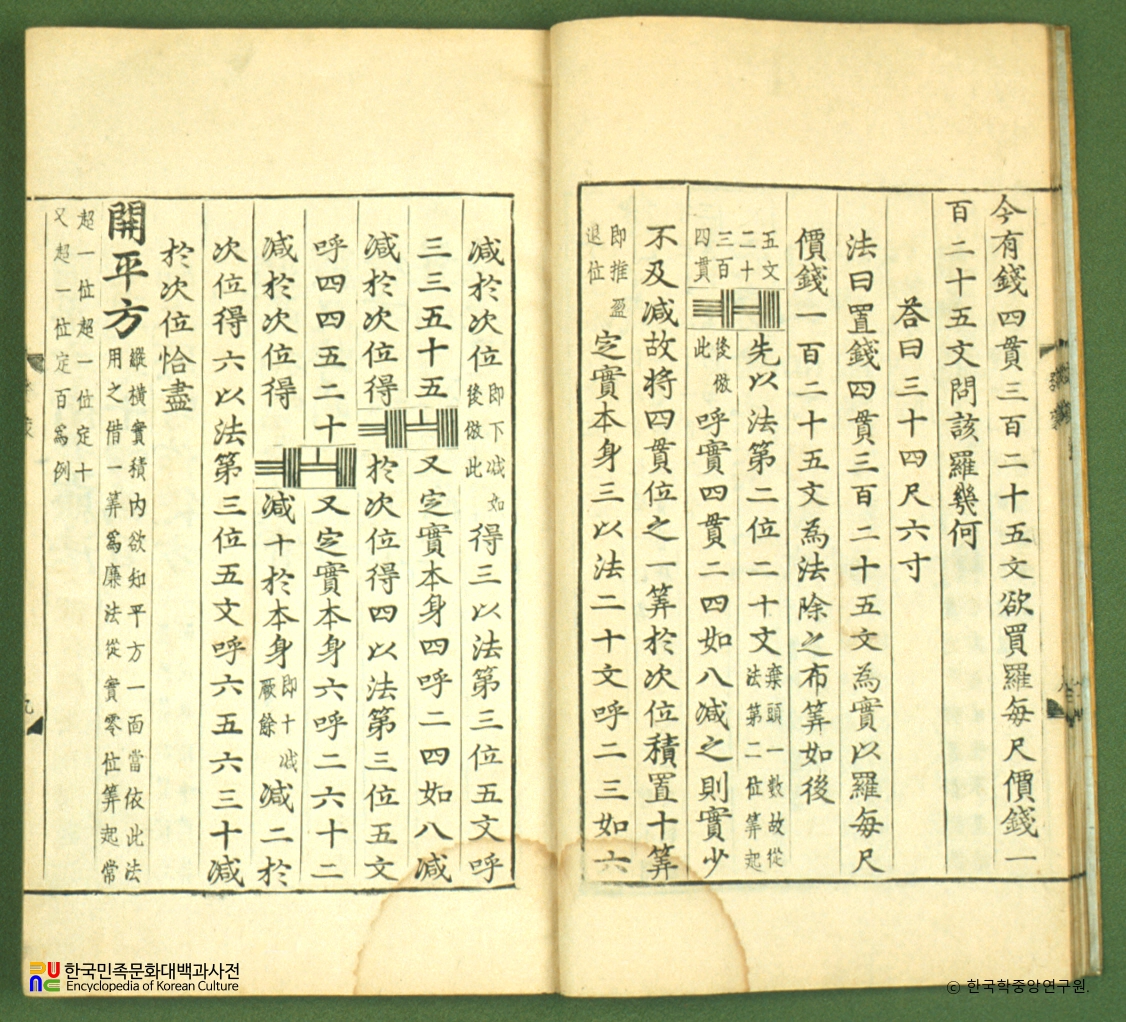 今有錢四貫三百二十五文欲買羅每尺價錢一
百二十五文問該羅幾何
荅曰三十四尺六寸
法曰置錢四貫三百二十五文為實以羅每尺
價錢一百二十五文為法除之布筭如後
五文
二十
三百
四貫
先以法第二位二十文棄頭一數故從
法第二位筭起
後倣
此
呼實四貫二四如八減之則實少
不及減故將四貫位之一筭於次位積置十筭
即推盈
退位
定實本身三以法二十文呼二三如六
減於次位即下減如
後倣此
得三以法第三位五文呼
三三五十五又定實本身四呼二四如八減
減於次位得於次位得四以法第三位五文
呼四四五二十又定實本身六呼二六十二
減於次位得減十於本身即十減
厥餘
減二於
次位得六以法第三位五文呼六五六三十減
於次位恰盡
開平方
縱橫實積内欲知平方一面當依此法
用之借一筭爲廉法從實零位筭起常
超一位超一位定十
又超一位定百爲例
한국민족문화대백과사전
Encyclopedia of Korean Culture
© 한국학중앙연구원.